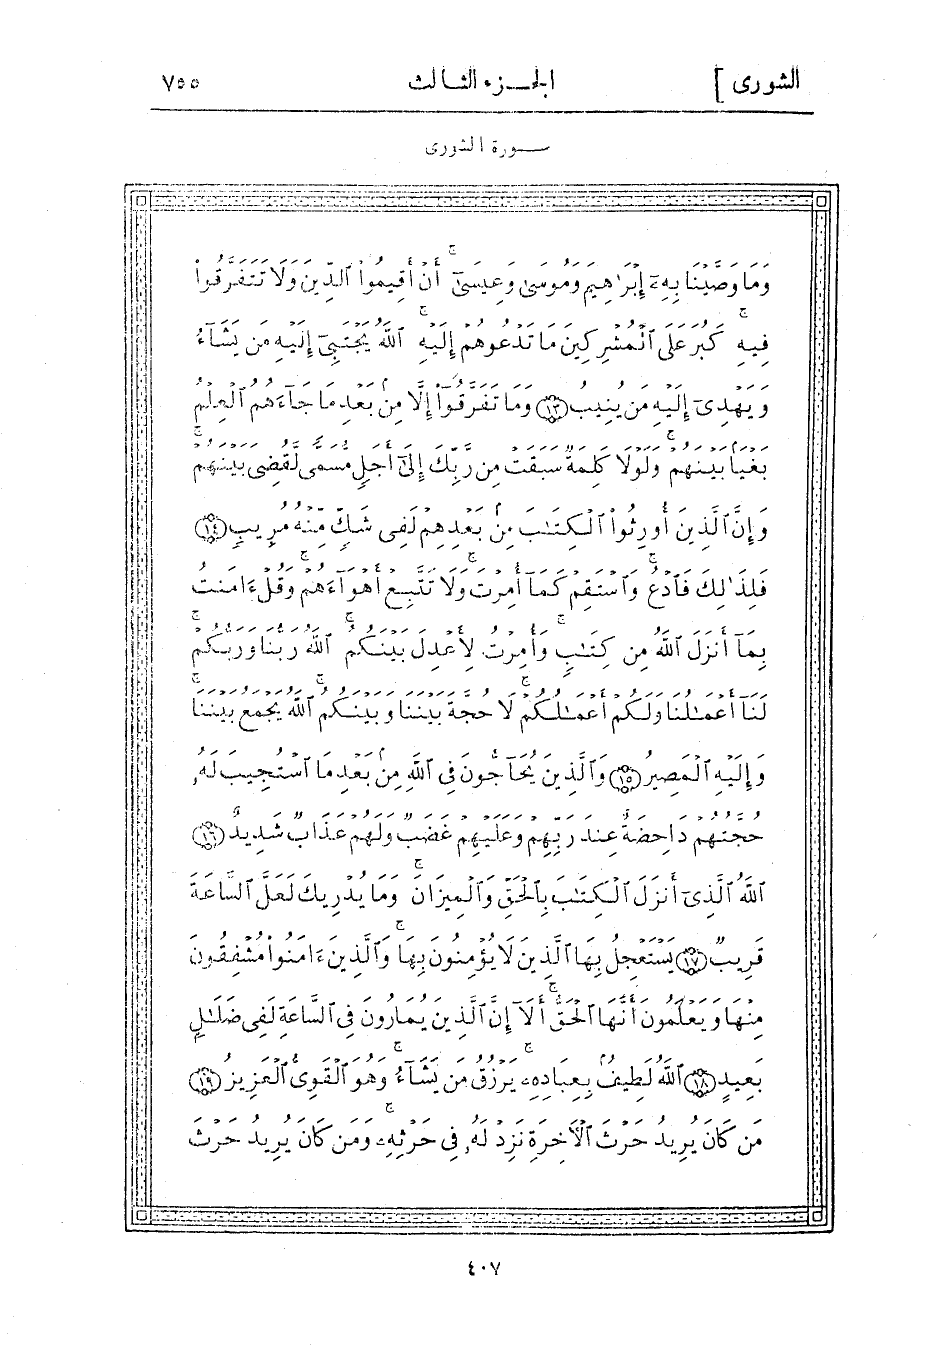 الشورى ]
الجـــزء الثـالث
٧٥٥
ســورة الشورى
وَمَا وَصَّيْنَا بِهِۦٓ إِبْرَٰهِيمَ وَمُوسَىٰ وَعِيسَىٰٓ ۖ أَنْ أَقِيمُوا۟ ٱلدِّينَ وَلَا تَتَفَرَّقُوا۟
فِيهِ ۚ كَبُرَ عَلَى ٱلْمُشْرِكِينَ مَا تَدْعُوهُمْ إِلَيْهِ ۚ ٱللَّهُ يَجْتَبِىٓ إِلَيْهِ مَن يَشَآءُ
وَيَهْدِىٓ إِلَيْهِ مَن يُنِيبُ ﴿١٣﴾ وَمَا تَفَرَّقُوٓا۟ إِلَّا مِنۢ بَعْدِ مَا جَآءَهُمُ ٱلْعِلْمُ
بَغْيًۢا بَيْنَهُمْ ۚ وَلَوْلَا كَلِمَةٌ سَبَقَتْ مِن رَّبِّكَ إِلَىٰٓ أَجَلٍ مُّسَمًّى لَّقُضِىَ بَيْنَهُمْ ۚ
وَإِنَّ ٱلَّذِينَ أُورِثُوا۟ ٱلْكِتَٰبَ مِنۢ بَعْدِهِمْ لَفِى شَكٍّ مِّنْهُ مُرِيبٍ ﴿١٤﴾
فَلِذَٰلِكَ فَٱدْعُ ۖ وَٱسْتَقِمْ كَمَآ أُمِرْتَ ۖ وَلَا تَتَّبِعْ أَهْوَآءَهُمْ ۖ وَقُلْ ءَامَنتُ
بِمَآ أَنزَلَ ٱللَّهُ مِن كِتَٰبٍ ۖ وَأُمِرْتُ لِأَعْدِلَ بَيْنَكُمُ ۖ ٱللَّهُ رَبُّنَا وَرَبُّكُمْ ۖ
لَنَآ أَعْمَٰلُنَا وَلَكُمْ أَعْمَٰلُكُمْ ۖ لَا حُجَّةَ بَيْنَنَا وَبَيْنَكُمُ ۖ ٱللَّهُ يَجْمَعُ بَيْنَنَا ۖ
وَإِلَيْهِ ٱلْمَصِيرُ ﴿١٥﴾ وَٱلَّذِينَ يُحَآجُّونَ فِى ٱللَّهِ مِنۢ بَعْدِ مَا ٱسْتُجِيبَ لَهُۥ
حُجَّتُهُمْ دَاحِضَةٌ عِندَ رَبِّهِمْ وَعَلَيْهِمْ غَضَبٌ وَلَهُمْ عَذَابٌ شَدِيدٌ ﴿١٦﴾
ٱللَّهُ ٱلَّذِىٓ أَنزَلَ ٱلْكِتَٰبَ بِٱلْحَقِّ وَٱلْمِيزَانَ ۗ وَمَا يُدْرِيكَ لَعَلَّ ٱلسَّاعَةَ
قَرِيبٌ ﴿١٧﴾ يَسْتَعْجِلُ بِهَا ٱلَّذِينَ لَا يُؤْمِنُونَ بِهَا ۖ وَٱلَّذِينَ ءَامَنُوا۟ مُشْفِقُونَ
مِنْهَا وَيَعْلَمُونَ أَنَّهَا ٱلْحَقُّ ۗ أَلَآ إِنَّ ٱلَّذِينَ يُمَارُونَ فِى ٱلسَّاعَةِ لَفِى ضَلَٰلٍۭ
بَعِيدٍ ﴿١٨﴾ ٱللَّهُ لَطِيفٌۢ بِعِبَادِهِۦ يَرْزُقُ مَن يَشَآءُ ۖ وَهُوَ ٱلْقَوِىُّ ٱلْعَزِيزُ ﴿١٩﴾
مَن كَانَ يُرِيدُ حَرْثَ ٱلْءَاخِرَةِ نَزِدْ لَهُۥ فِى حَرْثِهِۦ ۖ وَمَن كَانَ يُرِيدُ حَرْثَ
٤٠٧